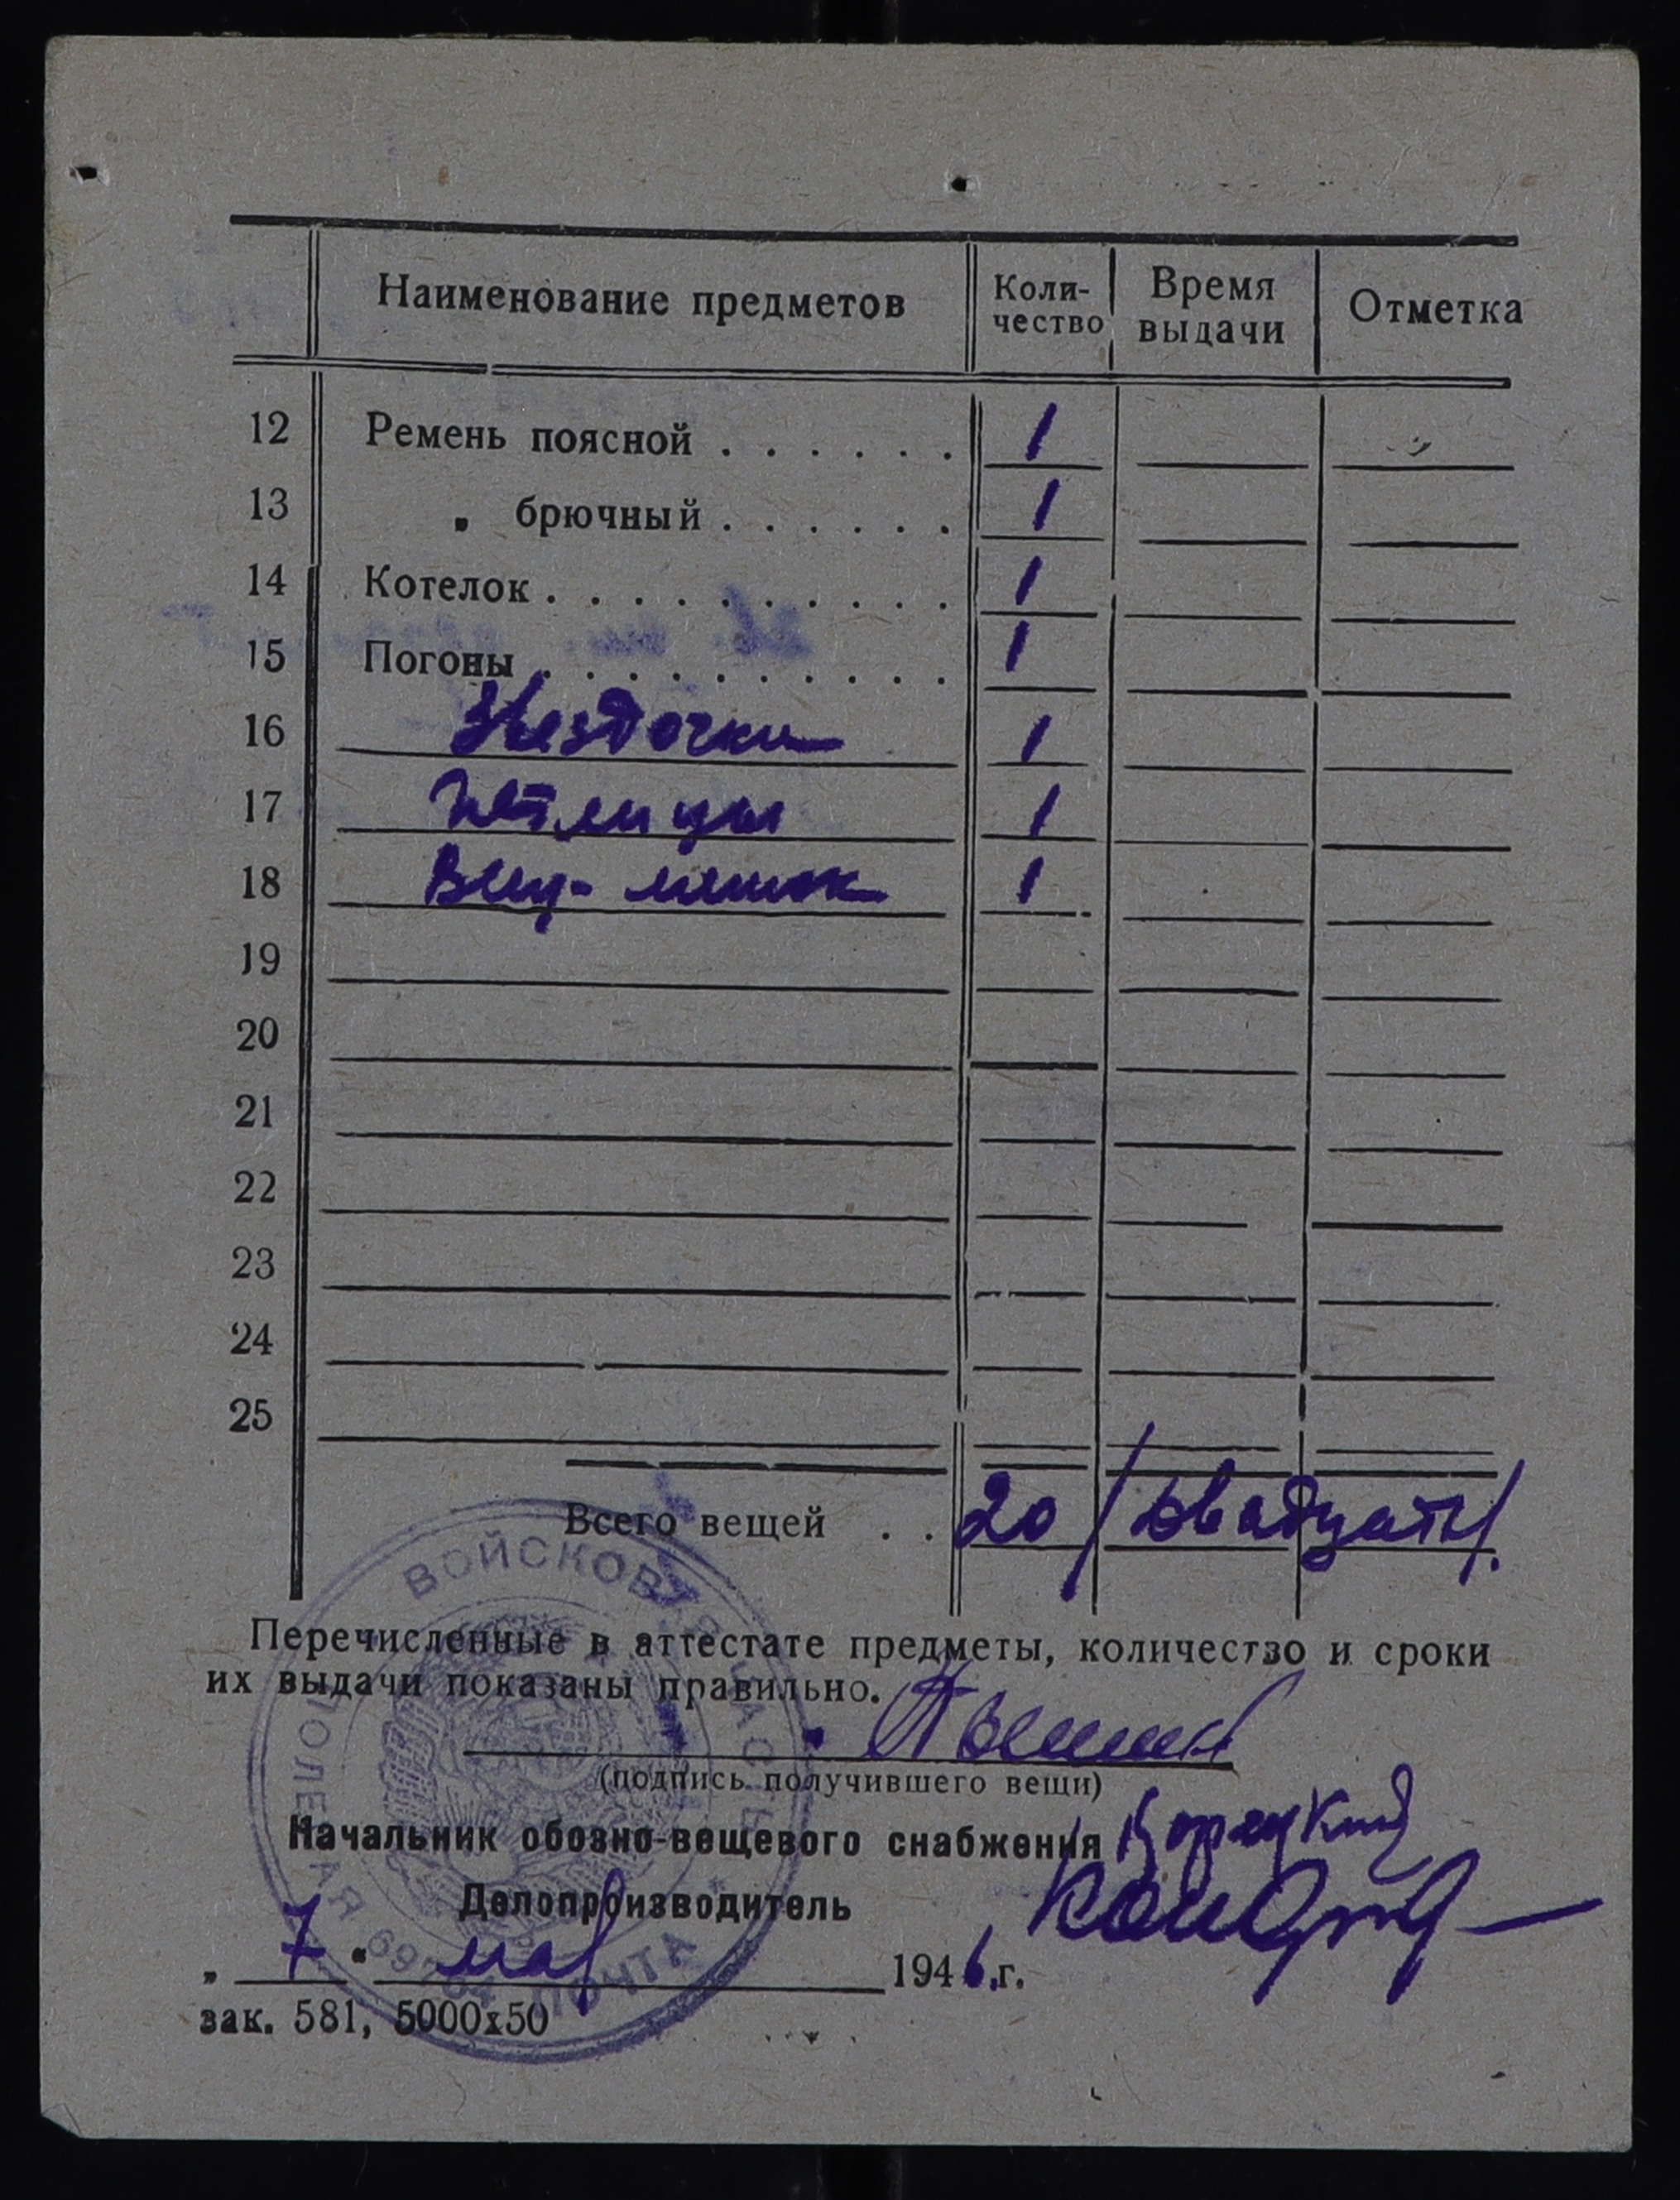 Наименование предметов Количество Время выдачи Отметка
12 Ремень поясной . . . . . . 1
13 „ брючный . . . . . . 1
14 Котелок . . . . . . . . . . 1
15 Погоны . . . . . . . . . . 1
16 Звездочки 1
17 Петлицы 1
18 Вещ-мешок 1
19
20
21
22
23
24
25
Всего вещей . . 20 /двадцать/.
Перечисленные в аттестате предметы, количество и сроки
их выдачи показаны правильно.
(подпись получившего вещи)
Начальник обозно-вещевого снабжения Корецкий
Делопроизводитель
„ 7 “ мая 1946 г.
зак. 581, 5000х50
ВОЙСКОВАЯ ЧАСТЬ
ПОЛЕВАЯ ПОЧТА